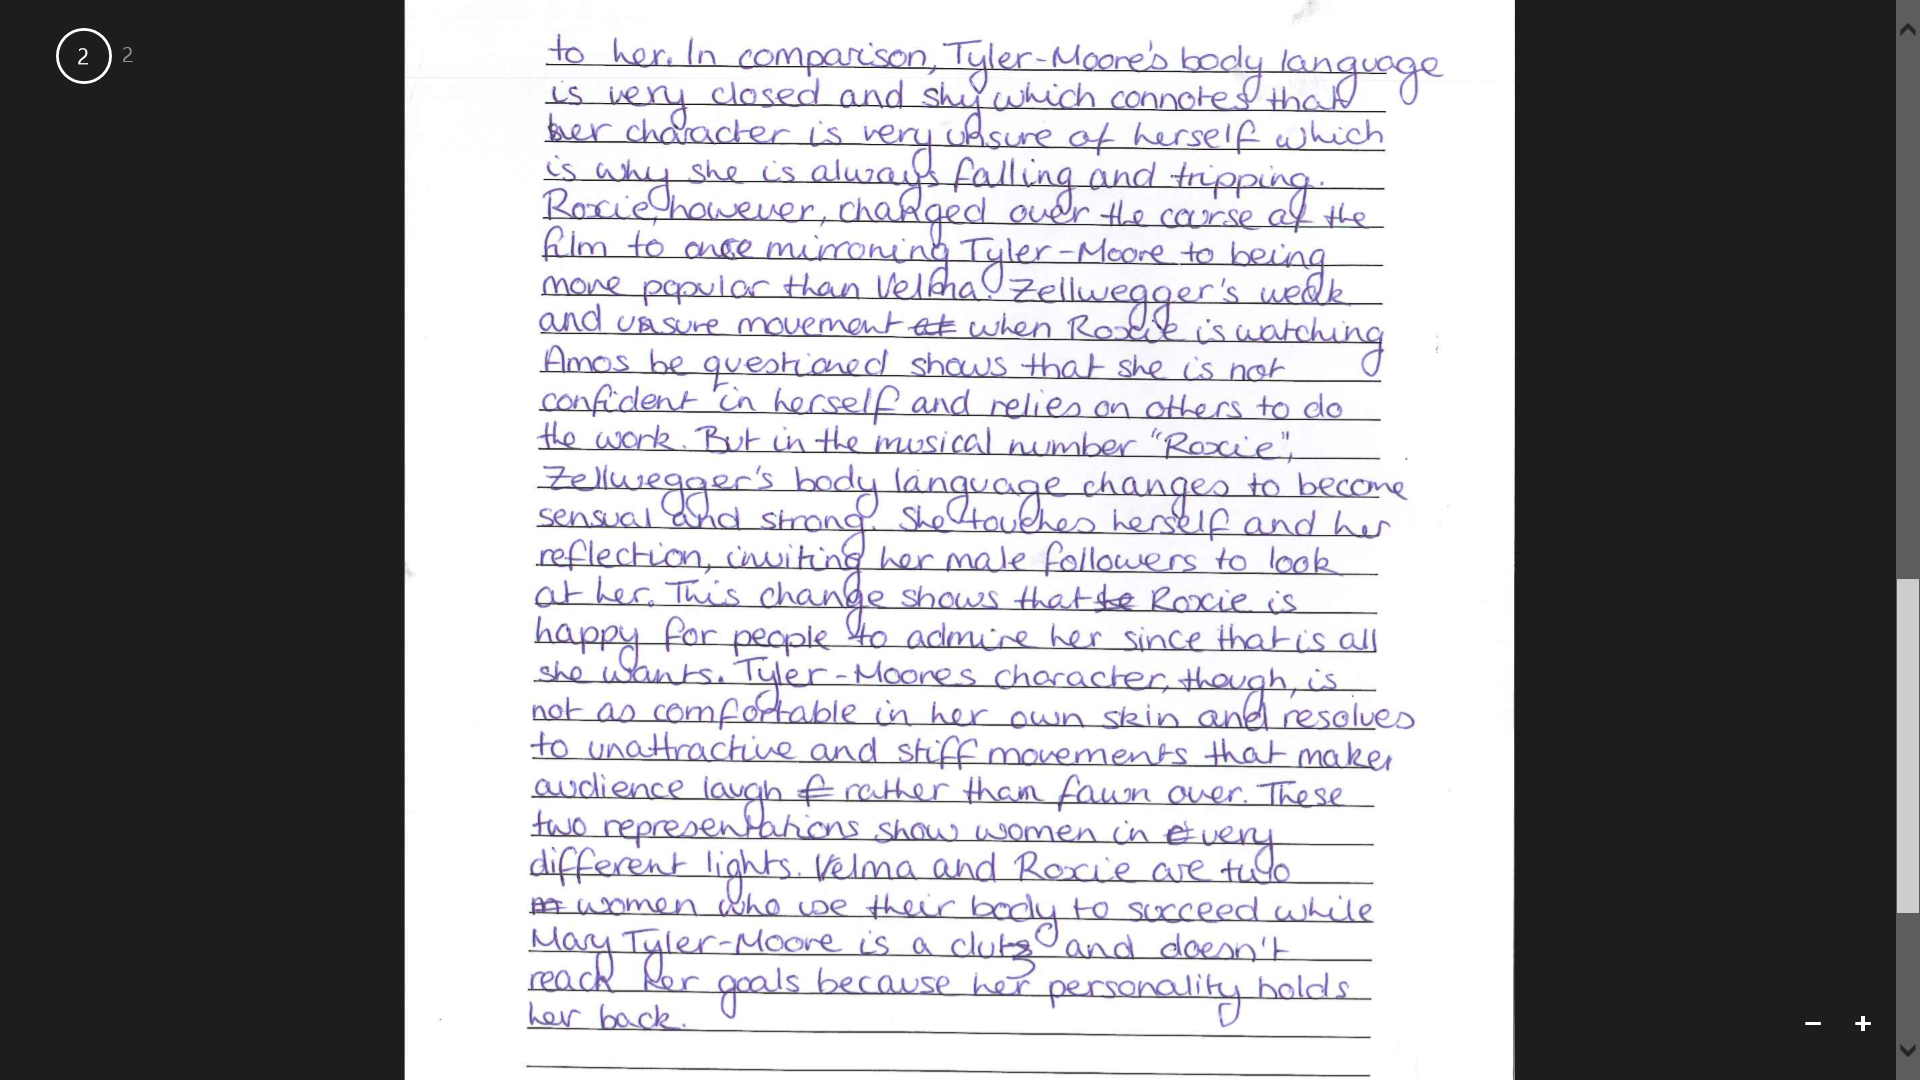 2 2
to her. In comparison, Tyler-Moore's body language
is very closed and shy which connotes that
her character is very unsure of herself which
is why she is always falling and tripping.
Roxie, however, changed over the course of the
film to once mirroring Tyler-Moore to being
more popular than Velma. Zellwegger's weak
and unsure movement at when Roxie is watching
Amos be questioned shows that she is not
confident in herself and relies on others to do
the work. But in the musical number "Roxie",
Zellwegger's body language changes to become
sensual and strong. She touches herself and her
reflection, inviting her male followers to look
at her. This change shows that to Roxie is
happy for people to admire her since that is all
she wants. Tyler-Moores character, though, is
not as comfortable in her own skin and resolves
to unattractive and stiff movements that makes
audience laugh f rather than fawn over. These
two representations show women in very
different lights. Velma and Roxie are two
women who use their body to succeed while
Mary Tyler-Moore is a clutz and doesn't
reach her goals because her personality holds
her back.